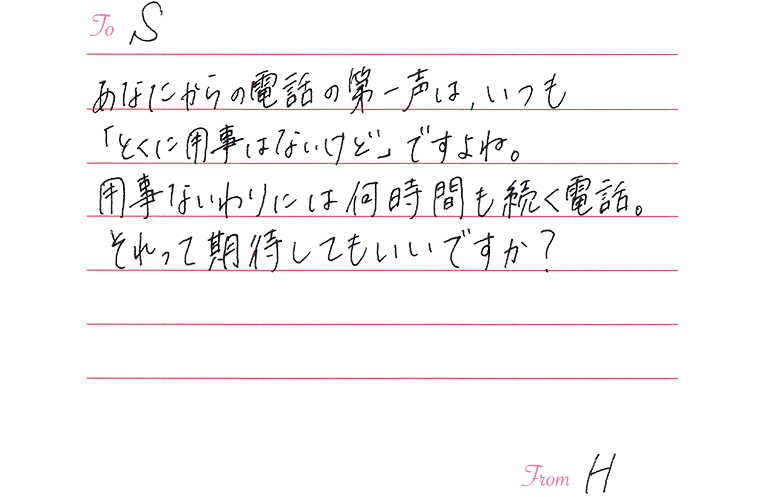 To S
あなたからの電話の第一声は、いつも
「とくに用事はないけど」ですよね。
用事ないわりには何時間も続く電話。
それって期待してもいいですか？
From H